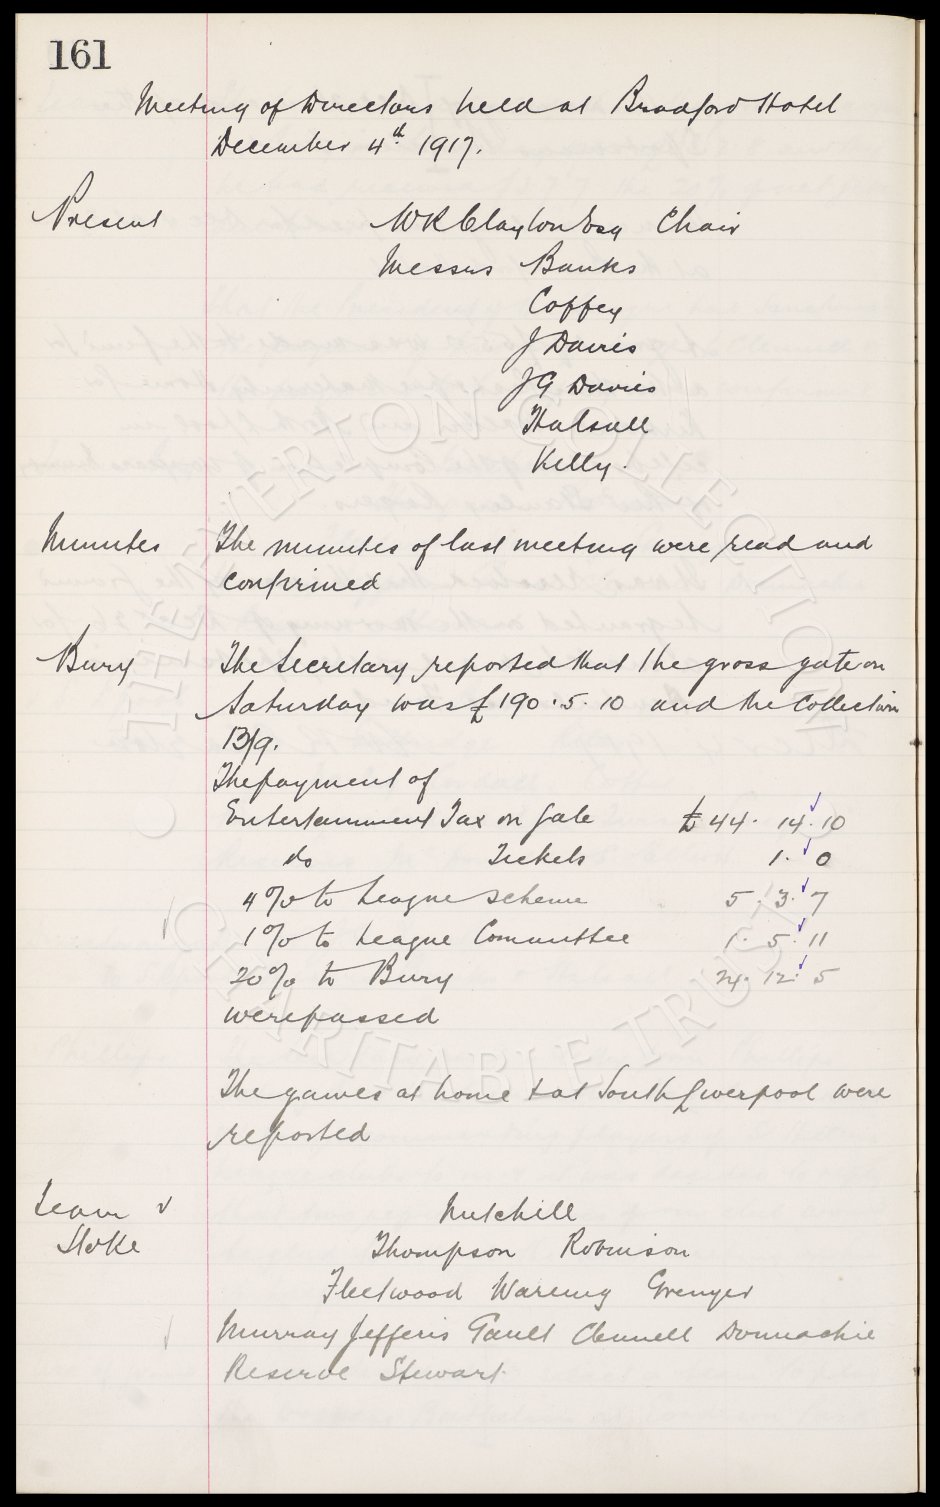 161
Meeting of Directors held at Bradford Hotel
December 4th 1917.
Present W R Clayton Esq Chair
Messrs Banks
Coffey
J Davies
J G Davies
Halsall
Kelly.
Minutes The minutes of last meeting were read and
confirmed
Bury The Secretary reported that the gross gate on
Saturday was £190.5.10 and the Collection
13/9.
The payment of
Entertainment Tax on Gate £44.14.10
do Tickets 1.0
4% to League Scheme 5.3.7
1% to League Committee 1.5.11
20% to Bury 24.12.5
were passed
The games at home & at South Liverpool were
reported
Team v Mitchell
Stoke Thompson Robinson
Fleetwood Wareing Grenyer
Murray Jefferis Gault Clennell Donnachie
Reserve Stewart.
THE EVERTON COLLECTION
CHARITABLE TRUST